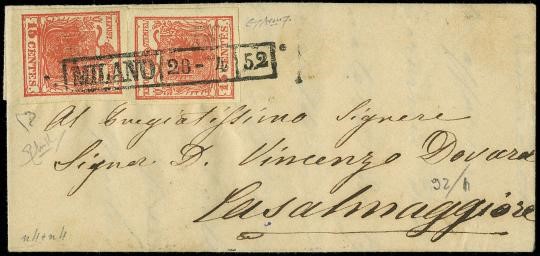 15 CENTES.
15 CENTES.
MILANO 28-4 52
Al Pregiatissimo Signore
Signor D. Vincenzo Dovara
92/4
Casalmaggiore
n4+n4